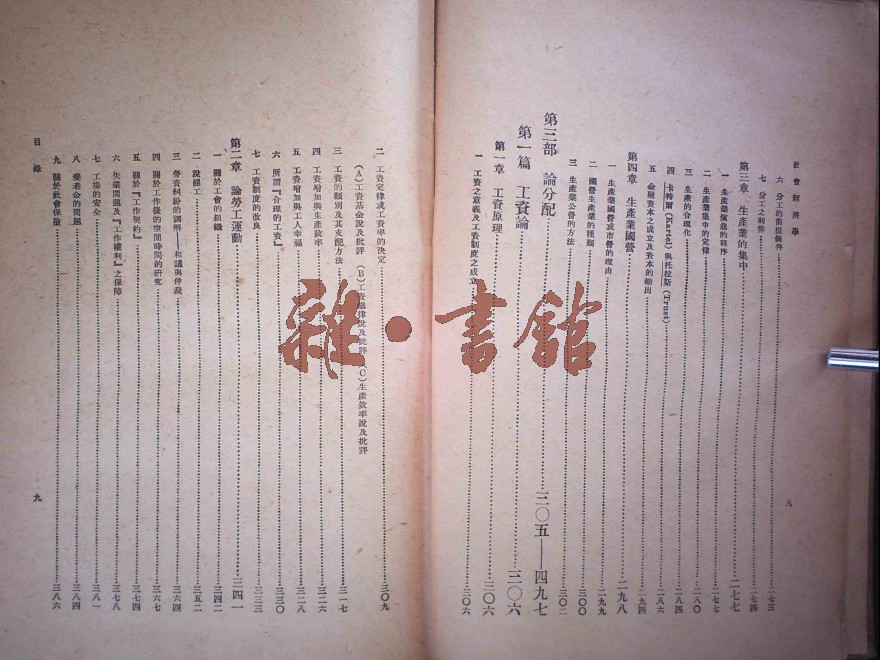 社會經濟學
八
六 分工的前提條件……二七三
七 分工之利弊……二七四
第三章 生產業的集中……二七七
一 生產業演進的程序……二七七
二 生產業集中的定律……二八〇
三 生產的合理化……二八四
四 卡特爾(Kartel)與托拉斯(Trust)……二八六
五 金融資本之成立及資本的輸出……二九一
第四章 生產業國營……二九八
一 生產業國營或市營的理由……二九九
二 國營生產業的種類……三〇〇
三 生產業公營的方法……三〇二
第三部 論分配……三〇五——四九七
第一篇 工資論……三〇六
第一章 工資原理……三〇六
一 工資之意義及工資制度之成立……三〇六
二 工資定律或工資率的決定……三〇九
(A)工資基金說及批評 (B)工資鐵律說及批評 (C)生產效率說及批評
三 工資的類別及其支配方法……三一七
四 工資增加與生產效率……三二六
五 工資增加與工人幸福……三二八
六 所謂『合理的工資』……三三〇
七 工資制度的改良……三三三
第二章 論勞工運動……三四一
一 關於工會的組織……三四二
二 說罷工……三五二
三 勞資糾紛的調解——和議與仲裁……三六四
四 關於工作後的空閒時間的研究……三六七
五 關於『工作契約』……三七四
六 失業問題及『工作權利』之保障……三七八
七 工場的安全……三八一
八 養老金的問題……三八四
九 關於社會保險……三八六
目錄
九
雜·書館